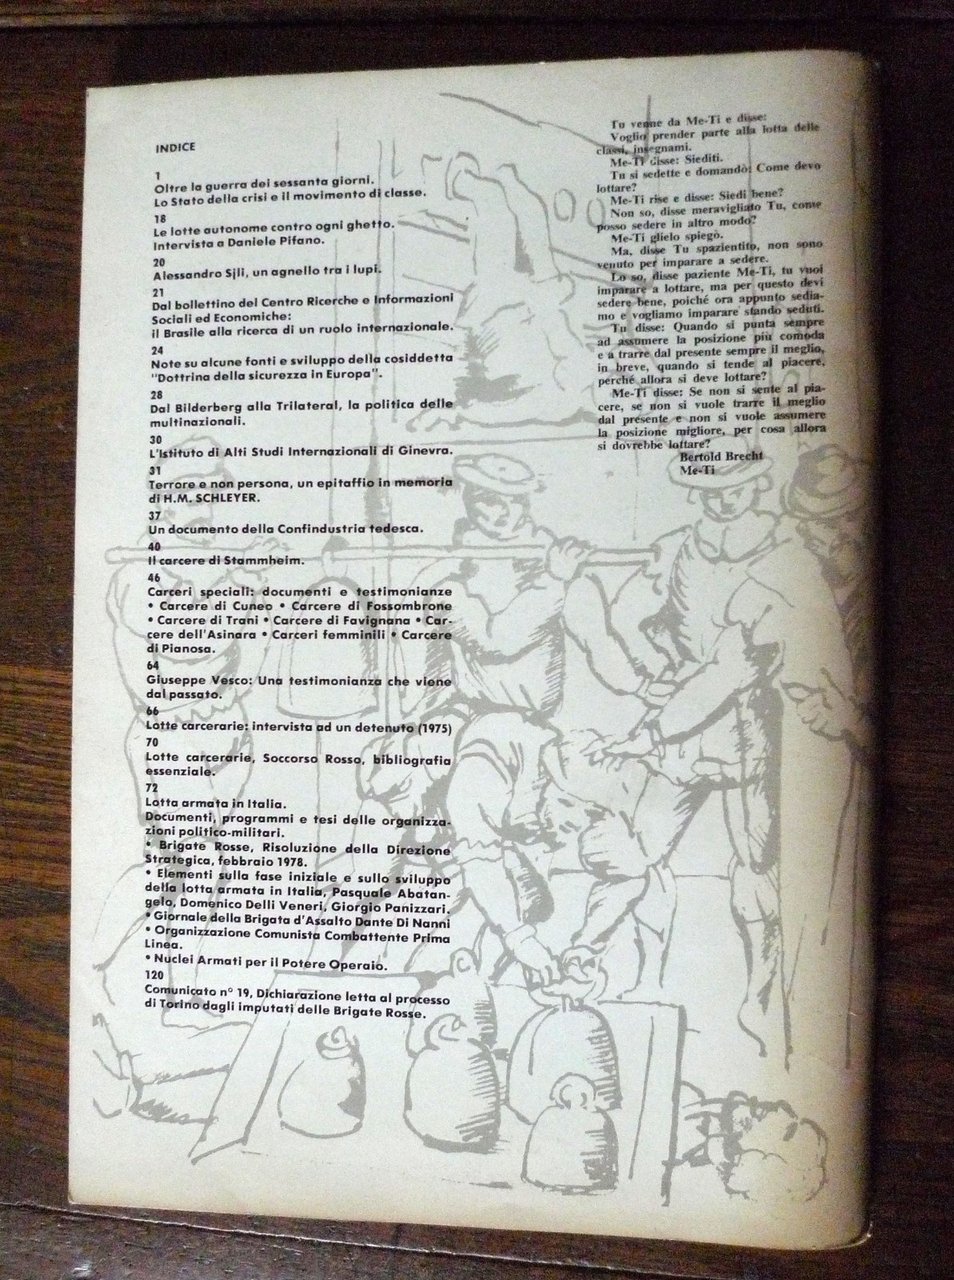 INDICE
1
Oltre la guerra dei sessanta giorni.
Lo Stato della crisi e il movimento di classe.
18
Le lotte autonome contro ogni ghetto.
Intervista a Daniele Pifano.
20
Alessandro Sjli, un agnello tra i lupi.
21
Dal bollettino del Centro Ricerche e Informazioni
Sociali ed Economiche:
il Brasile alla ricerca di un ruolo internazionale.
24
Note su alcune fonti e sviluppo della cosiddetta
"Dottrina della sicurezza in Europa".
28
Dal Bilderberg alla Trilateral, la politica delle
multinazionali.
30
L'Istituto di Alti Studi Internazionali di Ginevra.
31
Terrore e non persona, un epitaffio in memoria
di H.M. SCHLEYER.
37
Un documento della Confindustria tedesca.
40
Il carcere di Stammheim.
46
Carceri speciali: documenti e testimonianze
• Carcere di Cuneo • Carcere di Fossombrone
• Carcere di Trani • Carcere di Favignana • Car-
cere dell'Asinara • Carceri femminili • Carcere
di Pianosa.
64
Giuseppe Vesco: Una testimonianza che viene
dal passato.
66
Lotte carcerarie: intervista ad un detenuto (1975)
70
Lotte carcerarie, Soccorso Rosso, bibliografia
essenziale.
72
Lotta armata in Italia.
Documenti, programmi e tesi delle organizza-
zioni politico-militari.
• Brigate Rosse, Risoluzione della Direzione
Strategica, febbraio 1978.
• Elementi sulla fase iniziale e sullo sviluppo
della lotta armata in Italia, Pasquale Abatan-
gelo, Domenico Delli Veneri, Giorgio Panizzari.
• Giornale della Brigata d'Assalto Dante Di Nanni
• Organizzazione Comunista Combattente Prima
Linea.
• Nuclei Armati per il Potere Operaio.
120
Comunicato n° 19, Dichiarazione letta al processo
di Torino dagli imputati delle Brigate Rosse.
Tu venne da Me-Ti e disse:
Voglio prender parte alla lotta delle
classi, insegnami.
Me-Ti disse: Siediti.
Tu si sedette e domandò: Come devo
lottare?
Me-Ti rise e disse: Siedi bene?
Non so, disse meravigliato Tu, come
posso sedere in altro modo?
Me-Ti glielo spiegò.
Ma, disse Tu spazientito, non sono
venuto per imparare a sedere.
Lo so, disse paziente Me-Ti, tu vuoi
imparare a lottare, ma per questo devi
sedere bene, poiché ora appunto sedia-
mo e vogliamo imparare stando seduti.
Tu disse: Quando si punta sempre
ad assumere la posizione più comoda
e a trarre dal presente sempre il meglio,
in breve, quando si tende al piacere,
perché allora si deve lottare?
Me-Ti disse: Se non si sente al pia-
cere, se non si vuole trarre il meglio
dal presente e non si vuole assumere
la posizione migliore, per cosa allora
si dovrebbe lottare?
Bertold Brecht
Me-Ti